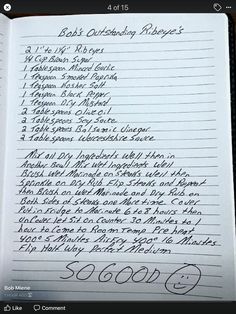 4 of 15
Bob's Outstanding Ribeye's
2 1" to 1 1/4" Ribeyes
1/4 Cup Brown Sugar
1 Tablespoon Minced Garlic
1 Teaspoon Smoked Paprika
1 Teaspoon Kosher Salt
1 Teaspoon Black Pepper
1 Teaspoon Dry Mustard
2 Tablespoons Olive Oil
2 Tablespoons Soy Sauce
2 Tablespoons Balsamic Vinegar
2 Tablespoons Worcestershire Sauce
Mix all Dry Ingredients Well then in
Another Bowl Mix Wet Ingredients Well
Brush Wet Marinade on Steaks Well then
Sprinkle on Dry Rub Flip Steaks and Repeat
then Brush on Wet Marinade and Dry Rub on
Both Sides of Steaks one More time. Cover
Put in Fridge to Marinate 6 to 8 hours then
Uncover Let Sit on Counter 30 Minutes to 1
hour to Come to Room Temp. Pre heat
400° 5 Minutes Air Fry 400° 16 Minutes
Flip Half Way Perfect Medium
SO GOOD
Bob Miene
Like Comment